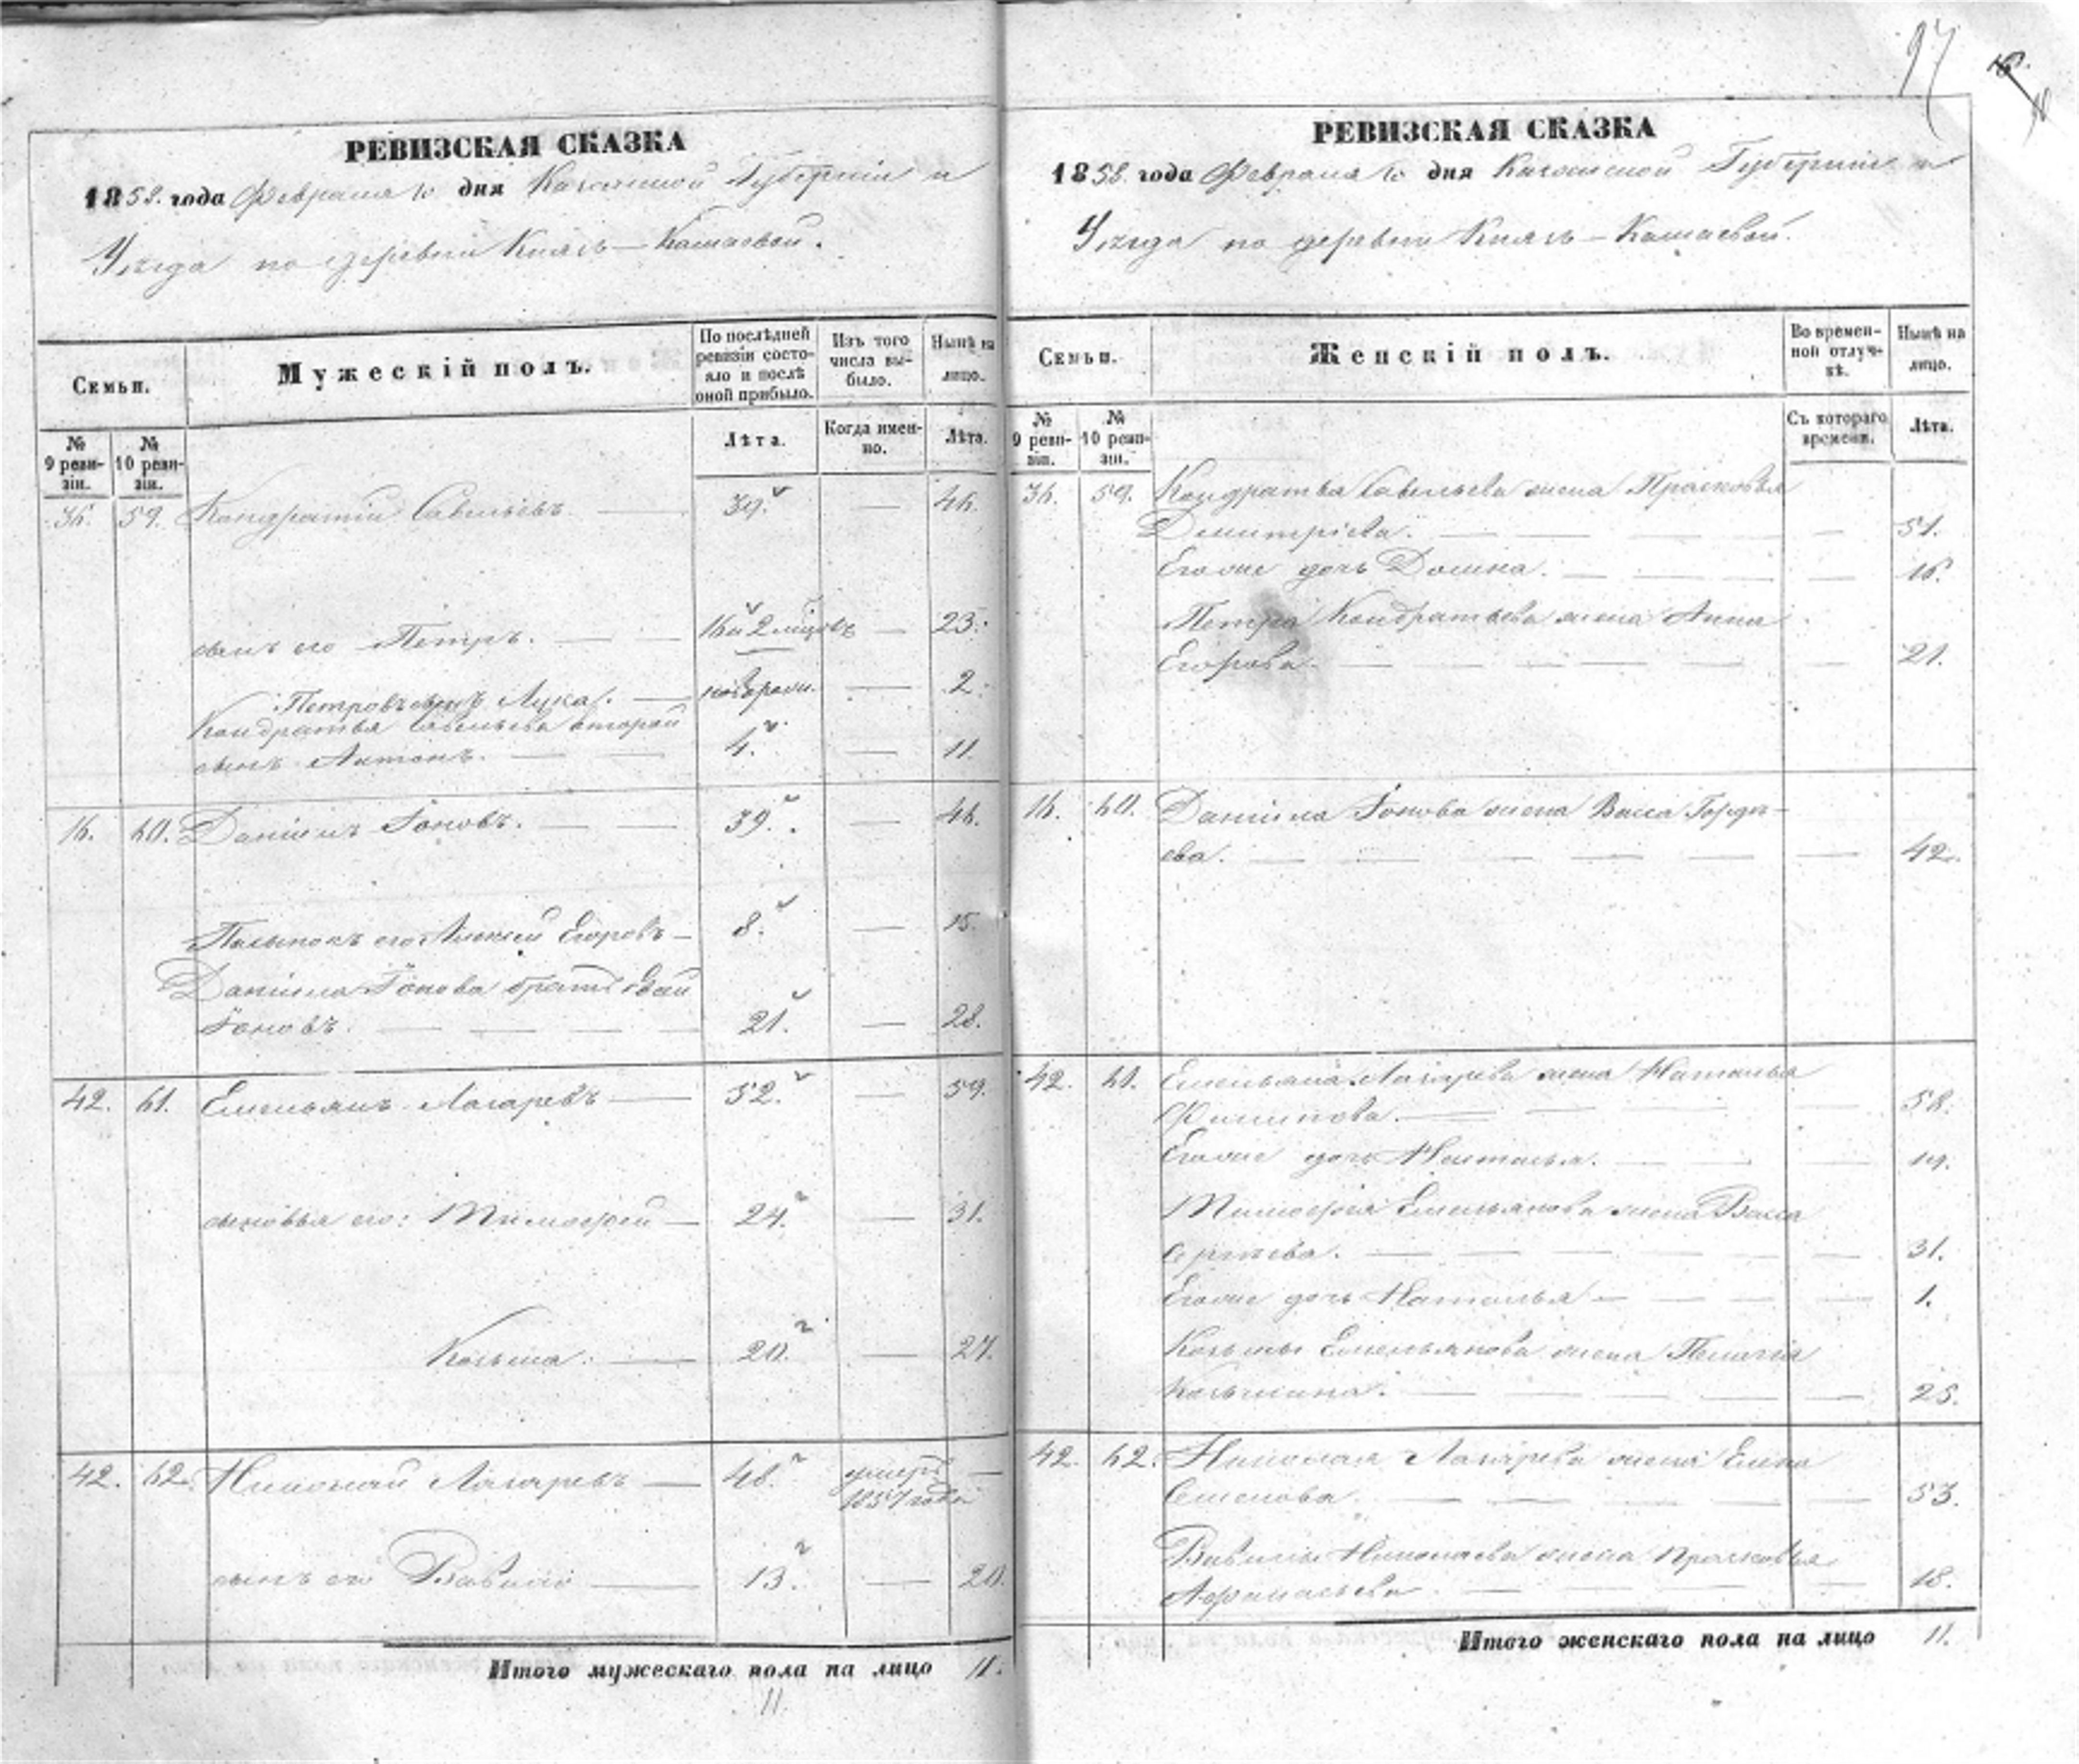 97
РЕВИЗСКАЯ СКАЗКА
1858. года Февраля 10 дня Казанской Губерніи и
Уѣзда по деревни Князь-Камаевой.
Семьи.
Мужескій полъ.
По послѣдней ревизіи состояло и послѣ оной прибыло.
Изъ того числа выбыло.
Нынѣ на лицо.
№ 9 ревизіи.
№ 10 ревизіи.
Лѣта.
Когда именно.
Лѣта.
36. 59. Кондратій Савельевъ — 39. — 46.
сынъ его Петръ. — 16 и 2 мѣсяц — 23.
Петровъ сынъ Лука. — новорож. — 2.
Кондратья Савельева второй
сынъ Антонъ. — 4. — 11.
16. 60. Данiилъ Іоновъ. — 39. — 46.
Пасынокъ его Алексѣй Егоровъ — 8. — 15.
Данiила Іонова братъ
Іоновъ. — 21. — 28.
42. 61. Емельянъ Лазаревъ — 52. — 59.
сыновья его: Тимофей — 24. — 31.
Козьма. — 20. — 27.
42. 62. Николай Лазаревъ — 48. умеръ —
1857 года
сынъ его Вавило — 13. — 20.
Итого мужескаго пола на лицо 11.
11.
РЕВИЗСКАЯ СКАЗКА
1858 года Февраля 10 дня Казанской Губерніи и
Уѣзда по деревни Князь-Камаевой.
Семьи.
Женскій полъ.
Во временной отлучкѣ.
Нынѣ на лицо.
№ 9 ревизіи.
№ 10 ревизіи.
Съ котораго времени.
Лѣта.
36. 59. Кондратья Савельева жена Прасковья
Дмитріева. — 51.
Егоже дочь Домна. — 16.
Петра Кондратьева жена Анна
Егорова. — 21.
16. 60. Данiила Іонова жена Васса Гордѣ-
ева. — 42.
42. 61. Емельяна Лазарева жена Наталья
Филипова. — 58.
Егоже дочь Наталья. — 19.
Тимофея Емельянова жена Васса
Сергѣева. — 31.
Егоже дочь Наталья — 1.
Козьмы Емельянова жена Пелагія
Козьмина. — 25.
42. 62. Николая Лазарева жена Елена
Семенова. — 53.
Вавилы Николаева жена Прасковья
Афанасьева — 18.
Итого женскаго пола на лицо 11.